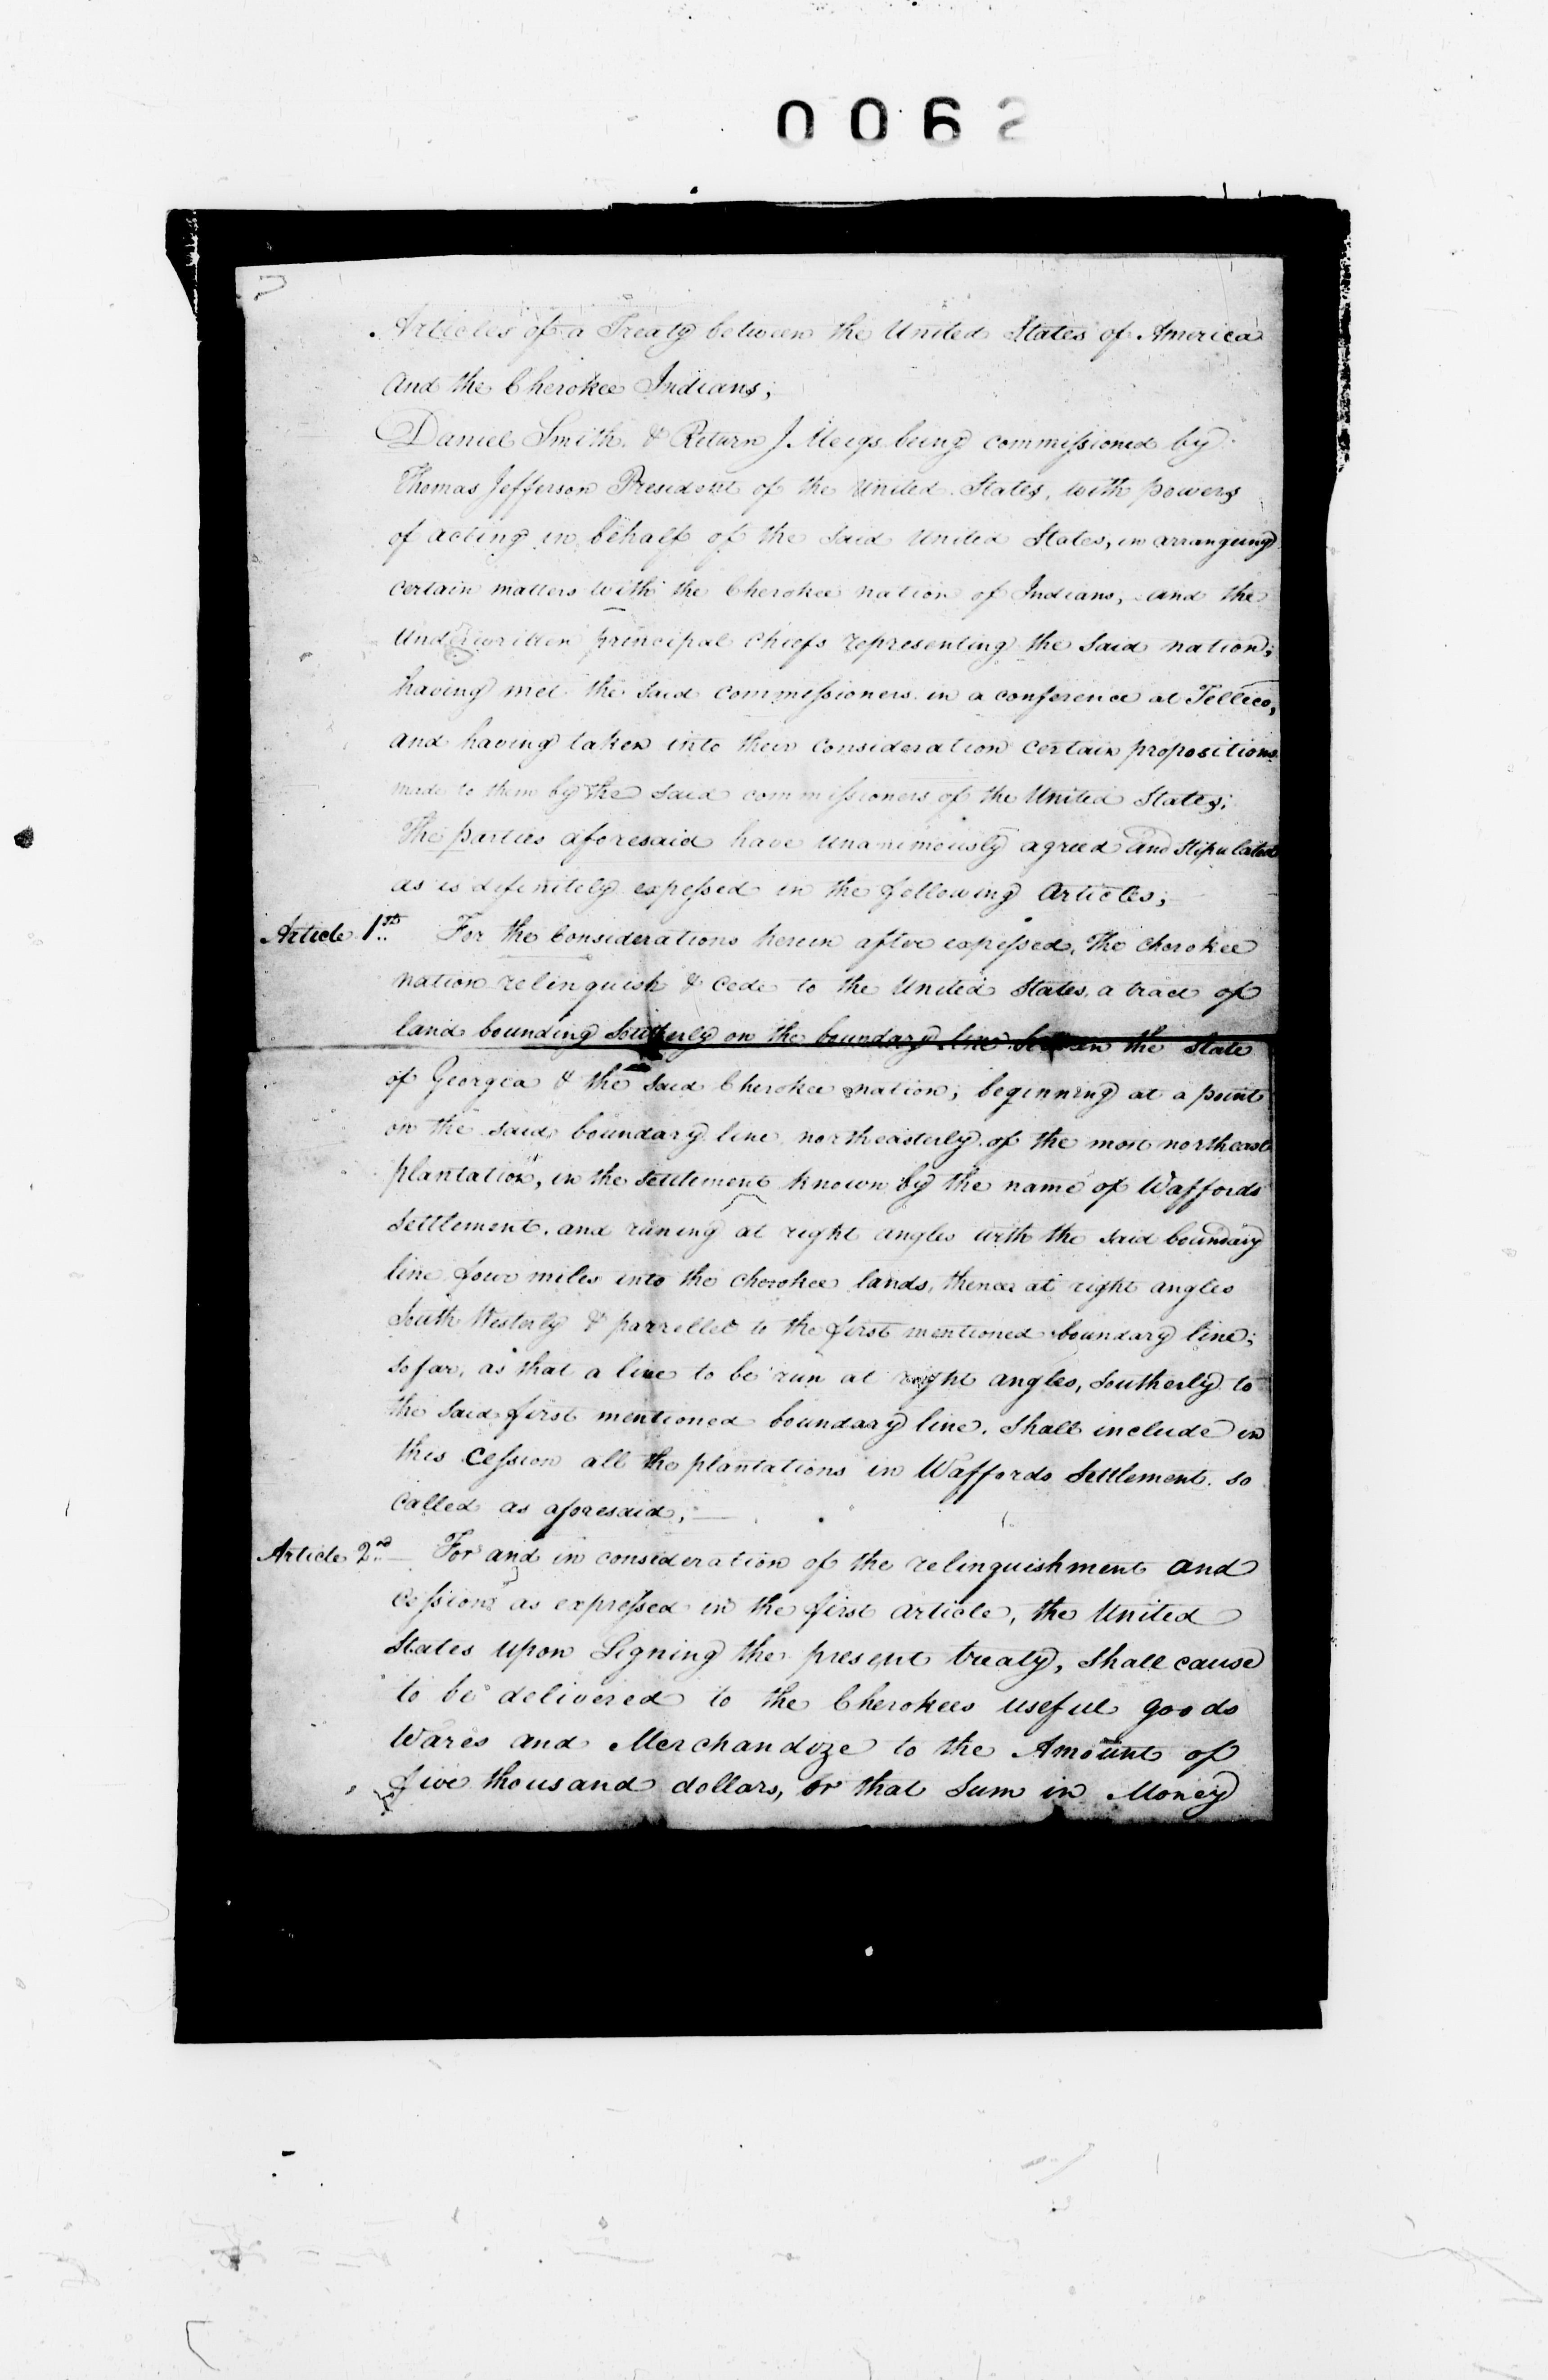 0062
Articles of a Treaty between the United States of America
and the Cherokee Indians;
Daniel Smith. & Return J. Meigs being commissioned by
Thomas Jefferson President of the United States, with powers
of acting in behalf of the said United States, in arranging
certain matters with the Cherokee nation of Indians, and the
underwritten principal chiefs representing the said nation;
having met the said commissioners in a conference at Tellico,
and having taken into their consideration certain propositions
made to them by the said commissioners of the United States;
The parties aforesaid have unanimously agreed and stipulated
as is definitely expessed in the following articles;
Article 1st For the Considerations herein after expessed, the Cherokee
nation relinquish & cede to the United States, a tract of
land bounding Southerly on the boundary line between the state
of Georgia & the said Cherokee nation; beginning at a point
on the said boundary line northeasterly of the most northeast
plantation, in the settlement known by the name of Waffords
Settlement. and runing at right angles with the said boundary
line four miles into the cherokee lands, thence at right angles
South Westerly & parrellel to the first mentioned boundary line;
so far, as that a line to be run at right angles, southerly to
the said first mentioned boundary line, shall include in
this Cession all the plantations in Waffords Settlement. so
called as aforesaid;
Article 2nd For and in consideration of the relinquishment and
cession as expressed in the first article, the United
States upon Signing the present treaty, Shall cause
to be delivered to the Cherokees useful goods
Wares and Merchandize to the Amount of
five thousand dollars, or that Sum in Money